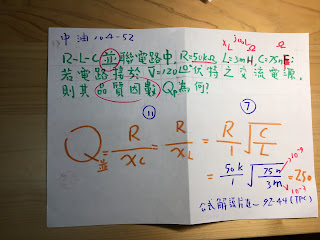 中油104-52
jωL
XL Ω Ω
R-L-C 並聯電路中, R=50kΩ, L=3mH, C=75nF;
若電路接於 V=120∠0°伏特之交流電源,
則其品質因數 Qp為何?
⑪ ⑦
Q並 = R/XC = R/XL = R/1 √(C/L)
= 50k/1 √(75n/3m) = 250
10⁻⁹
10⁻³
92-44(TPC)